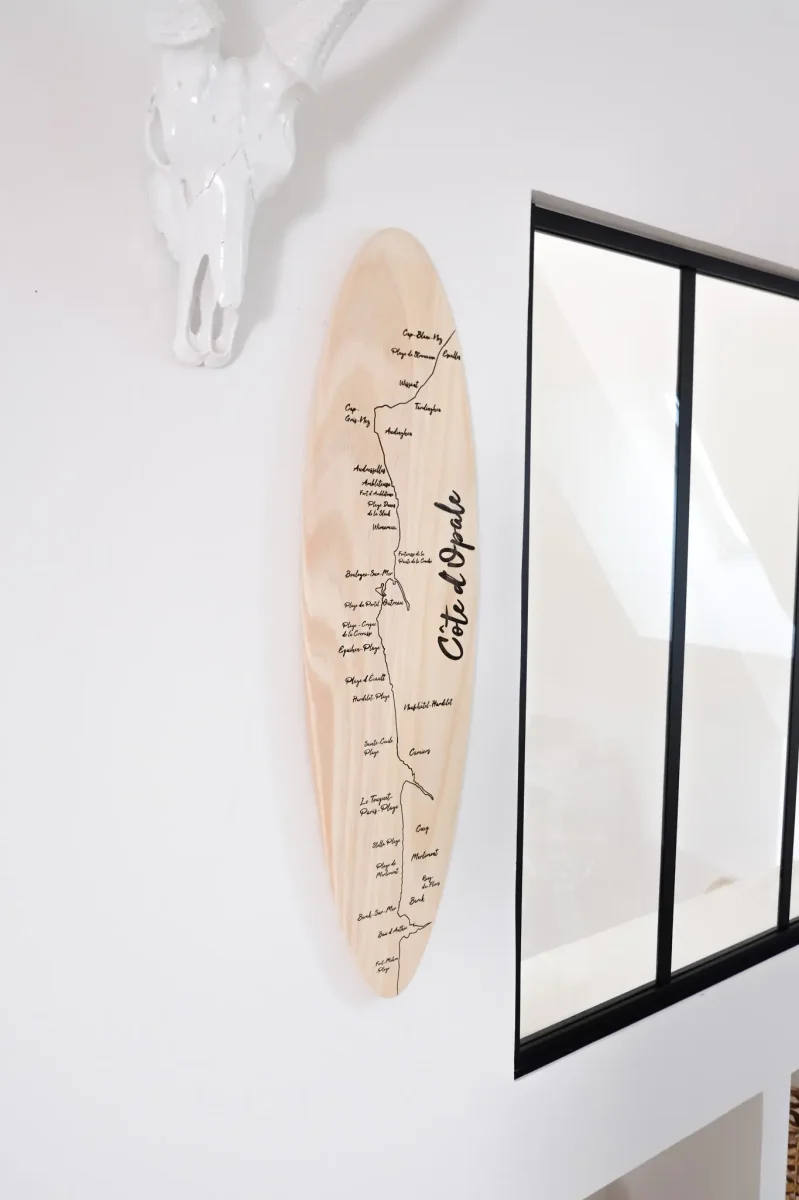 Cap-Blanc-Nez
Plage de Strouanne
Escalles
Wissant
Tardinghen
Cap-
Gris-Nez
Audinghen
Audresselles
Ambleteuse
Fort d'Ambleteuse
Plage Dunes
de la Slack
Wimereux
Forteresse de la
Pointe de la Crèche
Côte d'Opale
Boulogne-Sur-Mer
Plage du Portel
Outreau
Plage - Crique
de la Crevasse
Equihen-Plage
Plage d'Écault
Hardelot-Plage
Neufchâtel-Hardelot
Sainte-Cécile
Plage
Camiers
Le Touquet-
Paris-Plage
Cucq
Stella Plage
Merlimont
Plage de
Merlimont
Rang
du-Fliers
Berck
Berck-Sur-Mer
Baie d'Authie
Fort-Mahon
Plage